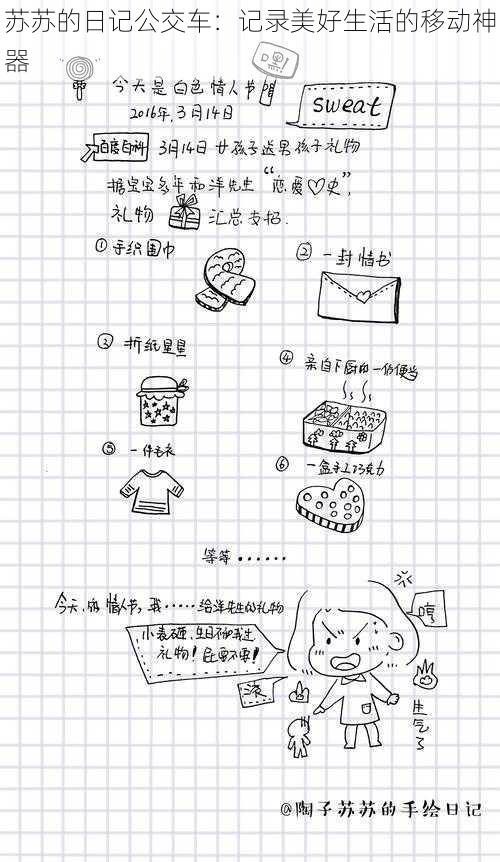 苏苏的日记公交车：记录美好生活的移动神
器
今天是白色情人节
2016年.3月14日
sweat
百度百科 3月14日 女孩子送男孩子礼物
据宝宝多年和洋先生“恋爱♡史”,
礼物 汇总支招.
① 手织围巾
② 一封情书
③ 折纸星星
④ 亲自下厨的一份便当
⑤ 一件毛衣
⑥ 一盒手工巧克力
等等······
今天,的情人节,我······给洋先生的礼物
礼物!
哼
滚
生气了
@陶子苏苏的手绘日记